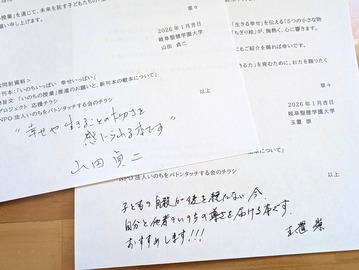 授業」を通じて、未来を託す子どもたちの
申し上げます。
草々
2026年1月吉日
岐阜聖徳学園大学
山田 貞二
同封資料>
刊本:「いのちいっぱい 幸せいっぱい」
文 「いのちの授業」推進のお願いと、新刊本の献本について」
プロジェクト 応援チラシ
NPO法人いのちをバトンタッチする会のチラシ
以上
"幸せや生きることの大切さを
感じられる本です"
山田貞二
「生きる幸せ」を伝える「5つの小さな物
ちぎり絵」が、腕無く、心に響きます。
もご紹介を賜れば幸いです。
きる力」を育むために、お力を賜りたく
草々
2026年1月吉日
岐阜聖徳学園大学
玉置 崇
について」
NPO法人いのちをバトンタッチする会のチラシ
以上
子どもの自殺が後を絶たない今、
自分と他者のいのちの尊さを届ける本です。
おすすめします!!!
玉置 崇